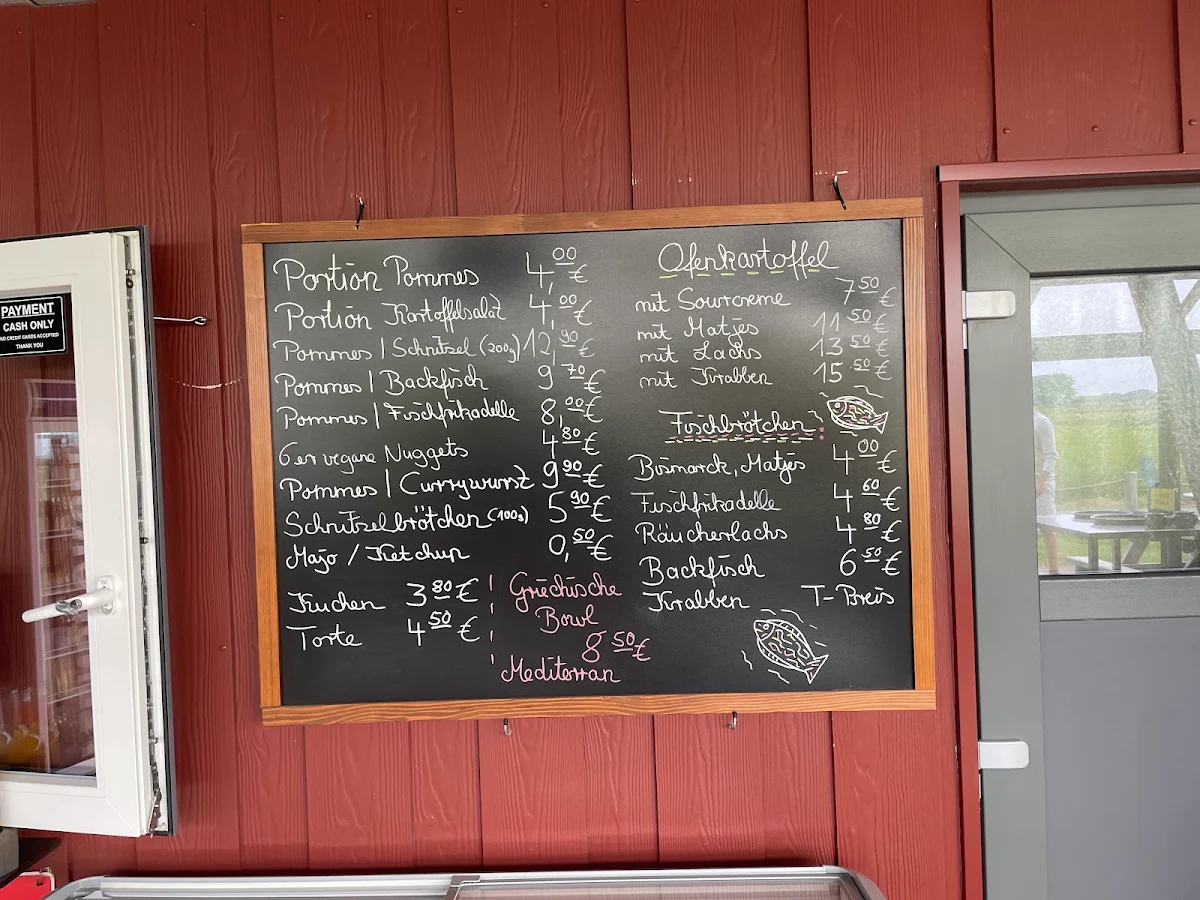 PAYMENT
CASH ONLY
NO CREDIT CARDS ACCEPTED
THANK YOU
Portion Pommes 4,00 €
Portion Kartoffelsalat 4,00 €
Pommes | Schnitzel (200g) 12,90 €
Pommes | Backfisch 9,70 €
Pommes | Fischfrikadelle 8,00 €
6er vegane Nuggets 4,80 €
Pommes | Currywurst 9,90 €
Schnitzelbrötchen (100g) 5,90 €
Majo / Ketchup 0,50 €
Kuchen 3,80 €
Torte 4,50 €
Griechische
Bowl
8,50 €
Mediterran
Ofenkartoffel
mit Sourcreme 7,50 €
mit Matjes 11,50 €
mit Lachs 13,50 €
mit Krabben 15,50 €
Fischbrötchen:
Bismarck, Matjes 4,00 €
Fischfrikadelle 4,60 €
Räucherlachs 4,80 €
Backfisch 6,50 €
Krabben T-Preis